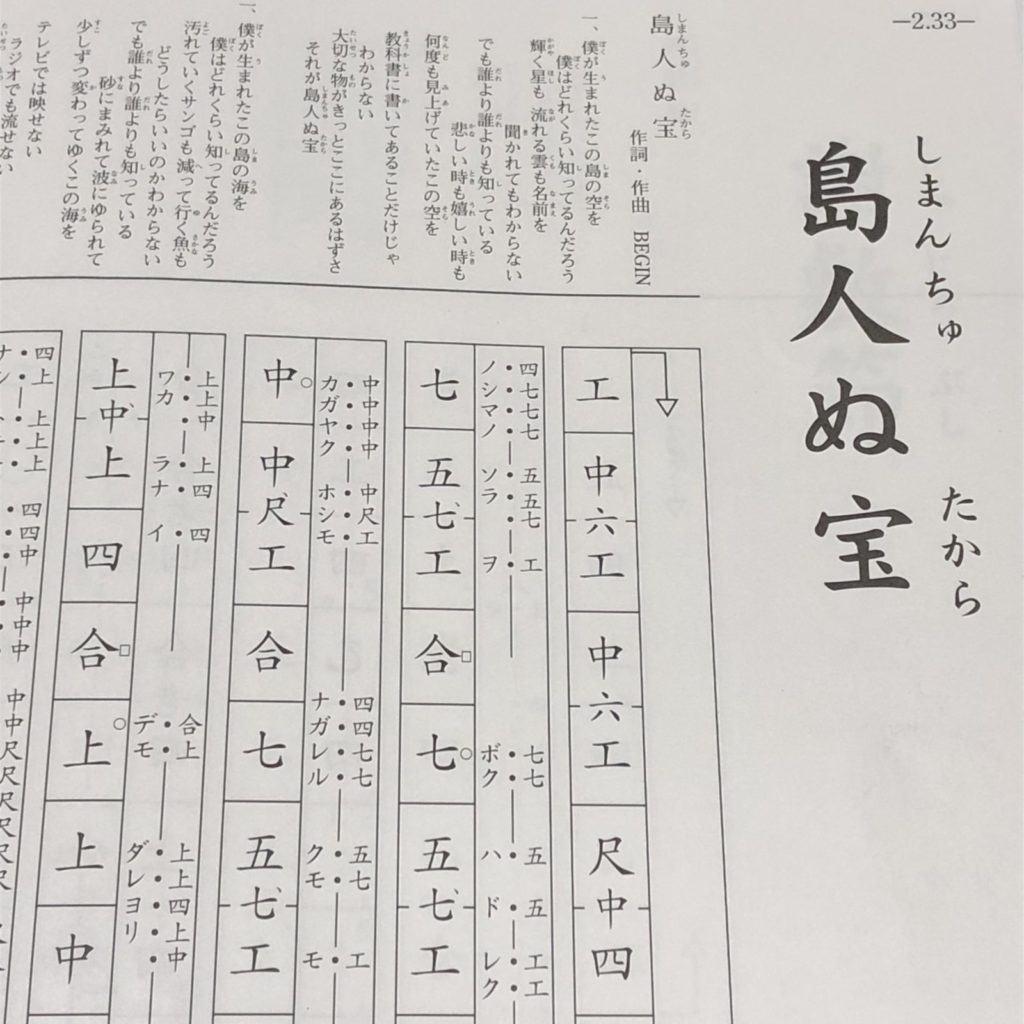 —2.33—
しまんちゅ たから
島人ぬ宝
島人ぬ宝
作詞・作曲 BEGIN
一、僕が生まれたこの島の空を
僕はどれくらい知ってるんだろう
輝く星も 流れる雲も名前を
聞かれてもわからない
でも誰より誰よりも知っている
悲しい時も嬉しい時も
何度も見上げていたこの空を
教科書に書いてあることだけじゃ
わからない
大切な物がきっとここにあるはずさ
それが島人ぬ宝
一、僕が生まれたこの島の海を
僕はどれくらい知ってるんだろう
汚れていくサンゴも減って行く魚も
どうしたらいいのかわからない
でも誰より誰よりも知っている
砂にまみれて波にゆられて
少しずつ変わってゆくこの海を
テレビでは映せない
ラジオでも流せない
工中六工中六工尺中四
四七七七 五五七 工 七七 五 五 工工
ノシマノ ソラ ヲ ボク ハ ド レク
七五七工合七五七工
中中中中 中尺工 四四七七 五七 工
カガヤク ホシモ ナガレル クモ モ
中中尺工合七五七工
上上中 上四 四 合上 上上四上中
ワカ ラナ イ デモ ダレヨリ
上中上四合上上中
四上 上上上 四四中 中中中 中中尺尺尺尺尺